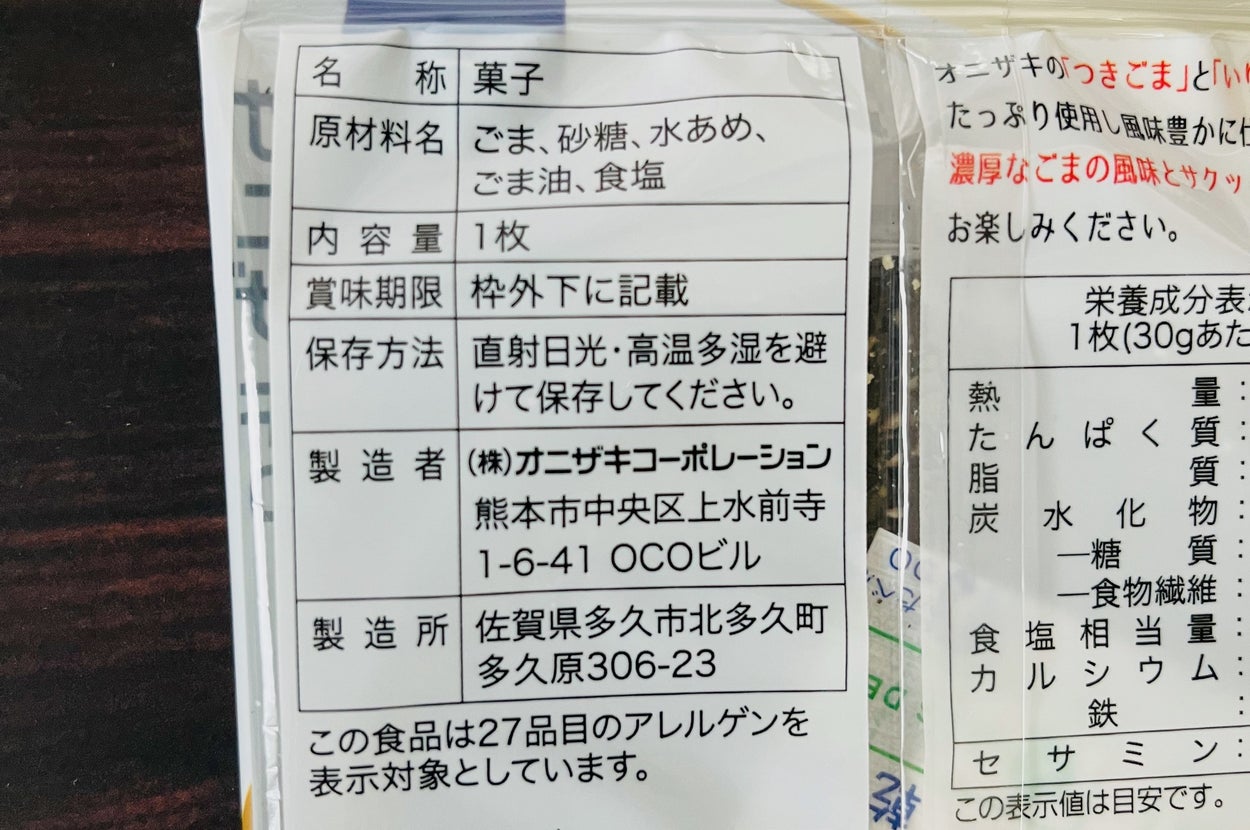 名称 菓子
原材料名 ごま、砂糖、水あめ、
ごま油、食塩
内容量 1枚
賞味期限 枠外下に記載
保存方法 直射日光・高温多湿を避
けて保存してください。
製造者 (株)オニザキコーポレーション
熊本市中央区上水前寺
1-6-41 OCOビル
製造所 佐賀県多久市北多久町
多久原306-23
この食品は27品目のアレルゲンを
表示対象としています。
オニザキの「つきごま」と「い
たっぷり使用し風味豊かに
濃厚なごまの風味とサクッ
お楽しみください。
栄養成分表
1枚(30gあた
熱量:
たんぱく質:
脂質:
炭水化物:
―糖質:
―食物繊維:
食塩相当量:
カルシウム:
鉄:
セサミン:
この表示値は目安です。